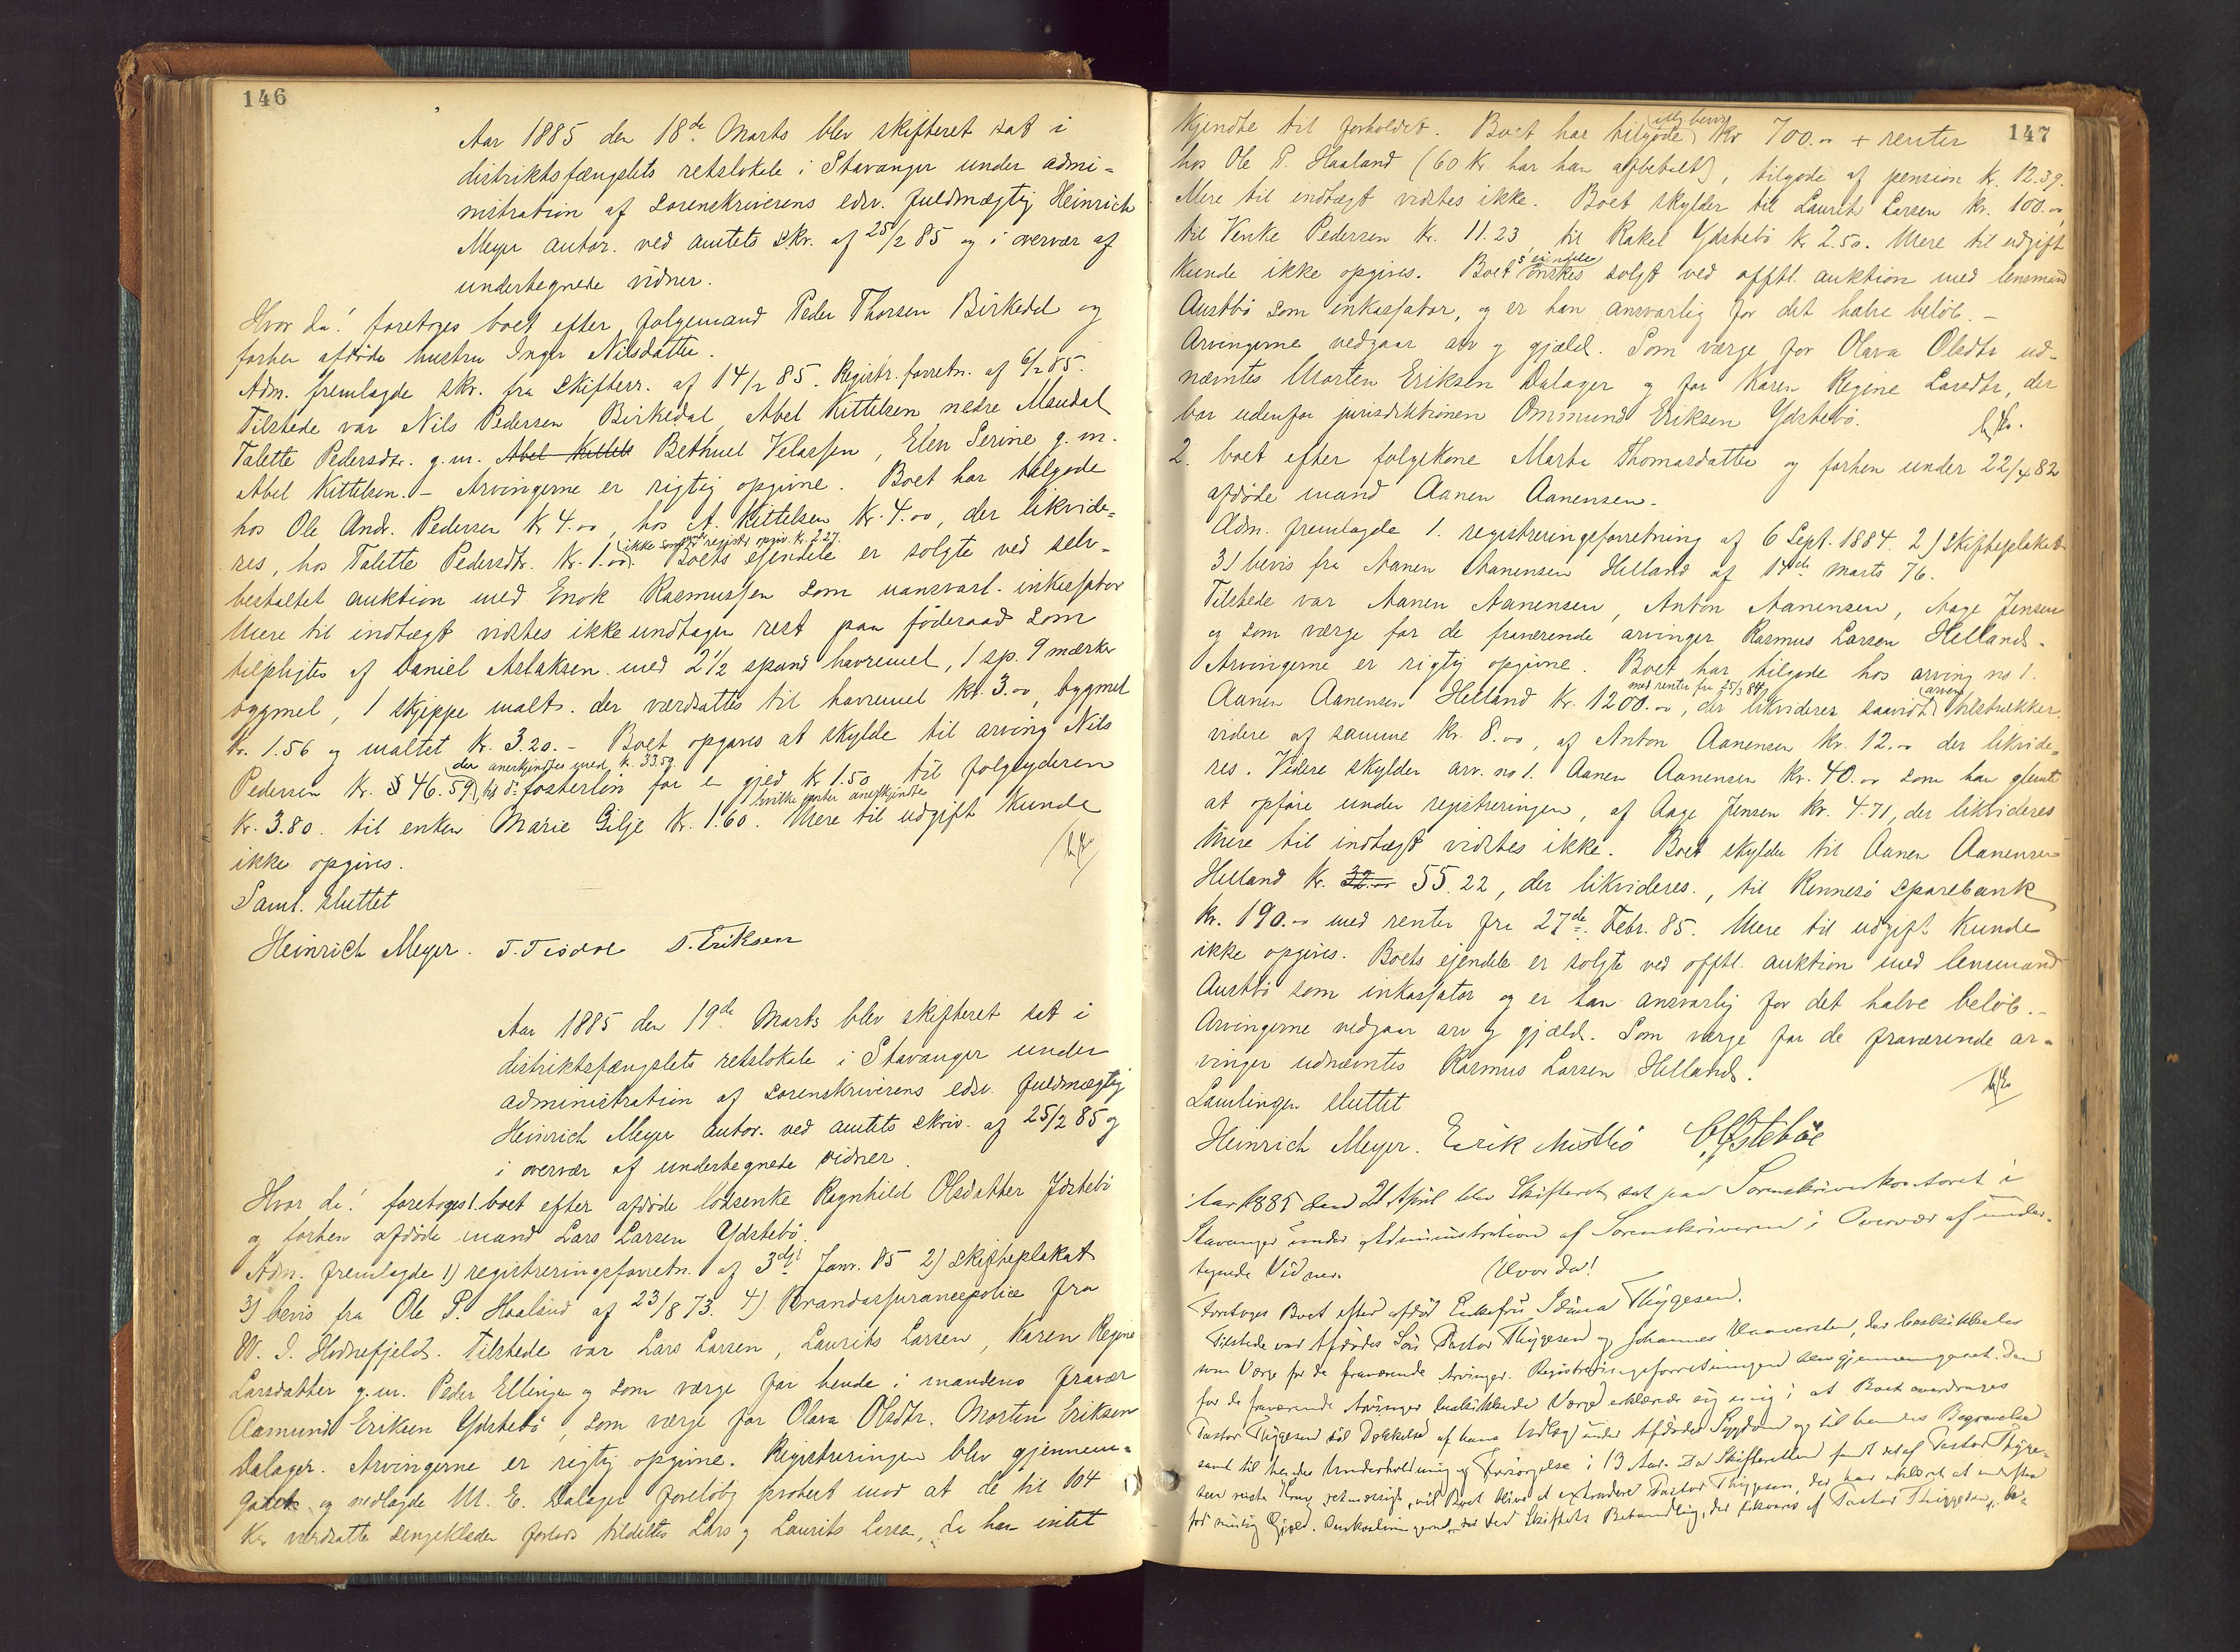 146
Aar 1885 den 18de Marts blev skifteret sat i
distriktsfængslets retslokale i Stavanger under admi-
nistration af sorenskriverens edsv. fuldmægtig Heinrich
Meyer autor. ved amtets skr. af 25/2 85 og i overvær af
undertegnede vidner.
Hvor da! foretoges boet efter folgemand Peder Thorsen Birkedal og
forhen afdøde hustru Inger Nilsdatter.
Adm. fremlagde skr. fra skifterr. af 14/2 85. Registr. forretn. af 6/2 85.
Tilstede var Nils Pedersen Birkedal, Abel Kittelsen nedre Maudal
Talette Pedersdtr. g.m. Abel Kittels Bethuel Velassen, Elen Serine g.m.
Abel Kittelsen. – Arvingerne er rigtig opgivne. Boet har tilgode
hos Ole Andr. Pedersen Kr 4.00, hos A. Kittelsen Kr. 4.00, der likvide-
ikke som ved registr opgiv. Kr. 2.27.
res, hos Talette Pedersdtr. Kr. 1.00. Boets ejendele er solgte ved selv-
bestaltet auktion med Enok Rasmussen som uansvarl. inkassator
Mere til indtægt vidstes ikke undtagen rest paa föderaad som
tilpligtes af Daniel Aslaksen med 2 1/2 spand havremel, 1 sp. 9 mærker
bygmel, 1 skjeppe malt. der værdsattes til havremel Kr. 3.00, bygmel
Kr. 1.56 og maltet Kr. 3.20. – Boet opgaves at skylde til arving Nils
der anerkjendtes med Kr. 33.59
Pedersen Kr. 46.59, til do fosterlön for en gjed Kr 1.50 til folgeyderen
hvilke poster anerkjendtes
Kr. 3.80. til enken Marie Gilje Kr. 1.60. Mere til udgift kunde
ikke opgives.
Saml. sluttet
Heinrich Meyer. T. Tisdal T. Eriksen
Aar 1885 den 19de Marts blev skifteret sat i
distriktsfængslets retslokale i Stavanger under
administration af sorenskriverens edsv. fuldmægtig
Heinrich Meyer autor. ved amtets skriv. af 25/2 85 og
i overvær af undertegnede vidner.
Hvor da! foretoges 1. boet efter afdöde losenke Ragnhild Olsdatter Ydstebö
og forhen afdöde mand Lars Larsen Ydstebö.
Adm. fremlagde 1) registreringsforretn. af 3die Janr. 85 2) skifteplakat
3) bevis fra Ole P. Haaland af 23/8 73. 4) Brandassurancepolice fra
W. I. Hodnefjeld. Tilstede var Lars Larsen, Laurits Larsen, Karen Regine
Larsdatter g.m. Peder Ellingsen og som værge for hende i mandens fravær
Aamund Eriksen Ydstebö, som værge for Olava Olsdtr. Morten Eriksen
Dalager. Arvingerne er rigtig opgivne. Registreringen blev gjennem-
gaaet og nedlagde M. E. Dalager foreløbig protest mod at de til 104
Kr værdsatte sengeklæder forlods tildeltes Lars og Laurits Larsen, da han intet
147
kjendte til forholdet. Boet har tilgode Kr 700.00 + renter
hos Ole P. Haaland (60 Kr. har han afbetalt), tilgode af pension Kr. 12.39.
Mere til indtægt vidstes ikke. Boet skylder til Laurits Larsen Kr. 100.00,
til Venke Pedersen Kr. 11.23, til Rakel Ydstebö Kr 2.50. Mere til udgift
s eiendele
kunde ikke opgives. Boet önskes solgt ved offtl. auktion med lensmand
Austbö som inkassator, og er han ansvarlig for det halve belöb. –
Arvingerne vedgaar arv og gjæld. Som værge for Olava Olsdtr ud-
nævntes Morten Eriksen Dalager og for Karen Regine Larsdtr, der
bor udenfor jurisdiktionen Ommund Eriksen Ydstebö.
2. boet efter folgekone Marta Thomasdatter og forhen under 22/4 82
afdöde mand Aanen Aanensen.
Adm. fremlagde 1. registreringsforretning af 6 Sept. 1884. 2) skifteplakat
3) bevis fra Aanen Aanensen Helland af 14de Marts 76.
Tilstede var Aanen Aanensen, Anton Aanensen, Aage Jensen
og som værge for de fraværende arvinger Rasmus Larsen Helland.
Arvingerne er rigtig opgivne. Boet har tilgode hos arving no 1.
med renter fra 25/3 84 arven
Aanen Aanensen Helland Kr. 1200.00, der likvideres saavidt tilstrækker.
videre af samme Kr. 8.00, af Anton Aanensen Kr. 12.00 der likvide-
res. Videre skylder arv. no 1. Aanen Aanensen Kr. 40.00 som han glemte
at opföre under registreringen, af Aage Jensen Kr. 4.71, der likvideres
Mere til indtægt vidstes ikke. Boet skylder til Aanen Aanensen
Helland Kr. 55.22, der likvideres., til Rennesö sparebank
Kr. 190.00 med renter fra 27de Febr. 85. Mere til udgift kunde
ikke opgives. Boets ejendele er solgte ved offtl. auktion med lensmand
Austbö som inkassator og er han ansvarlig for det halve belöb. –
Arvingerne vedgaar arv og gjæld. Som værge for de fraværende ar-
vinger udnævntes Rasmus Larsen Helland.
Samlingen sluttet
Heinrich Meyer. Erik
Aar 1885 den 21 April blev Skifteret sat paa Sorenskriverkontoret i
Stavanger under Administration af Sorenskriveren i Overvær af under-
tegnede Vidner. Hvor da!
Foretoges Boet efter afdød Enkefru Thygesen.
Tilstede var Afdødes Søn Pastor Thygesen og Johannes der beskikkedes
som Værge for de fraværende Arvinger. Registreringsforretningen blev gjennemgaaet. Den
for de fraværende Arvinger beskikkede Værge erklærede sig enig i at Boet overdrages
Pastor Thygesen til Dækkelse af hans Udlæg under Afdødes Sygdom og til hendes Begravelse
samt til hendes Underholdning og Forsørgelse i 13 Aar. Da Skifteretten fandt det af Pastor Thyge-
sen reiste Krav retmæssigt, vil Boet blive at extradere Pastor Thygesen, der har erklæret at
Gjæld. ved Skiftets Behandling, der af Pastor Thygesen,